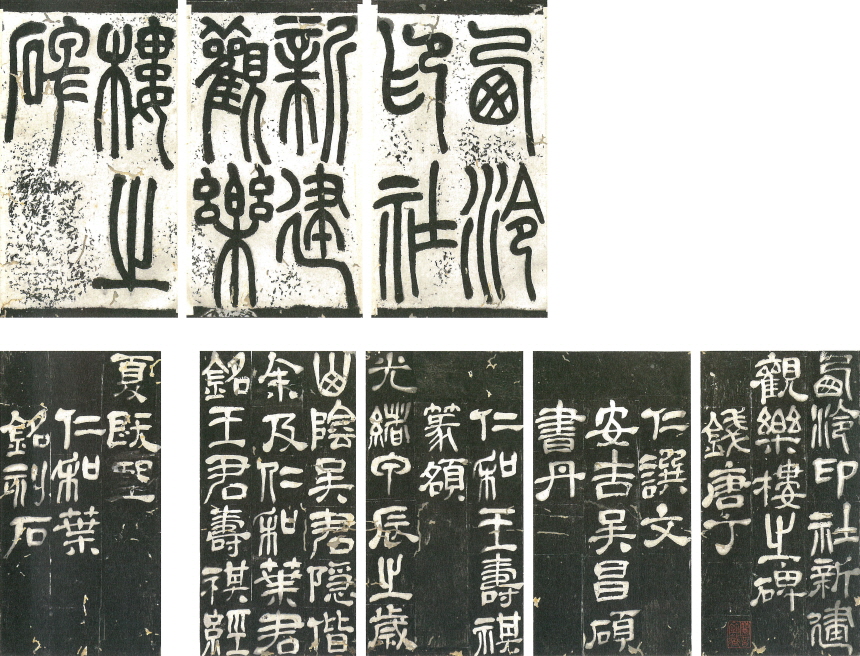 西泠
印社
新建
觀樂
樓之
碑
西泠印社新建
觀樂樓之碑
錢唐丁
仁譔文
安吉吳昌碩
書丹
仁和王壽祺
篆額
光緒甲辰之歲
山陰吳君隱偕
余及仁和葉君
銘王君壽祺經
夏既朢
仁和葉
銘刻石